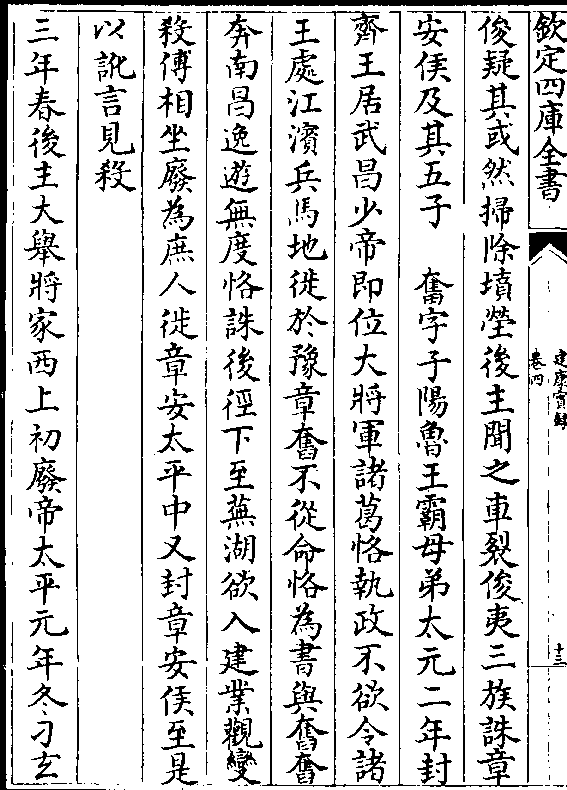 欽定四庫全書
建康實録
卷四
十三
俊疑其或然掃除墳塋後主聞之車裂俊夷三族誅章
安侯及其五子　奮字子陽魯王霸母弟太元二年封
齊王居武昌少帝即位大將軍諸葛恪執政不欲令諸
王處江濱兵馬地徙於豫章奮不從命恪為書與奮奮
奔南昌逸遊無度恪誅後徑下至蕪湖欲入建業觀變
殺傅相坐廢為庶人徙章安太平中又封章安侯至是
以訛言見殺
三年春後主大舉將家西上初廢帝太平元年冬刁玄